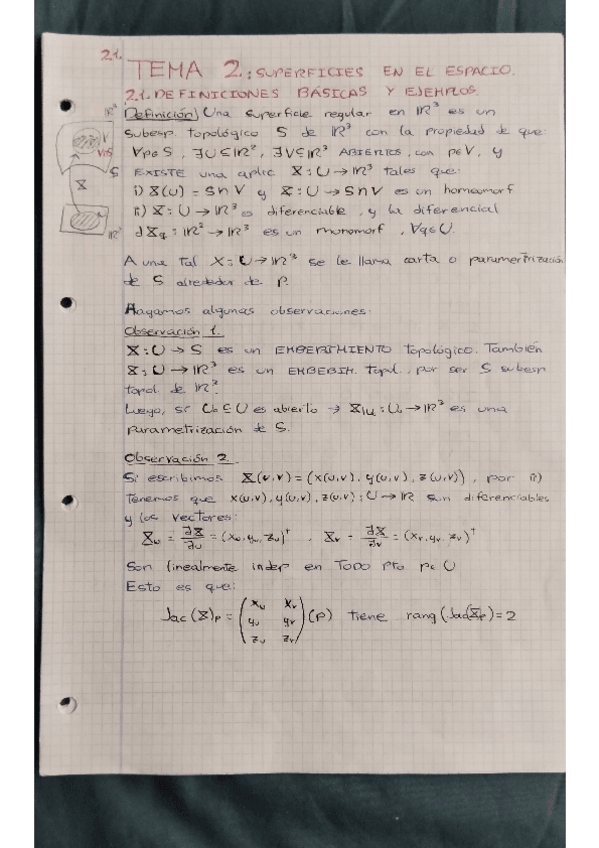 2.1.
TEMA 2: SUPERFICIES EN EL ESPACIO.
2.1. DEFINICIONES BÁSICAS Y EJEMPLOS.
Definición) Una superficie regular en ℝ³ es un
subesp. topológico S de ℝ³ con la propiedad de que:
∀p∈S, ∃U⊆ℝ², ∃V⊆ℝ³ ABIERTOS, con p∈V, y
EXISTE una aplic X:U→ℝ³ tales que:
i) X(U) = S∩V y X:U→S∩V es un homeomorf
ii) X:U→ℝ³ es diferenciable, y la diferencial
dX_q: ℝ²→ℝ³ es un monomorf, ∀q∈U.
A una tal X:U→ℝ³ se le llama carta o parametrización
de S alrededor de p.
Hagamos algunas observaciones:
Observación 1.
X:U→S es un EMBEBIMIENTO topológico. También
X:U→ℝ³ es un EMBEBIM. topol., por ser S subesp
topol. de ℝ³.
Luego, si U₀⊆U es abierto → X|U₀:U₀→ℝ³ es una
parametrización de S.
Observación 2.
Si escribimos X(u,v) = (x(u,v), y(u,v), z(u,v)), por ii)
Tenemos que x(u,v), y(u,v), z(u,v):U→ℝ son diferenciables
y los vectores:
X_u = ∂X/∂u = (x_u, y_u, z_u)ᵗ, X_v = ∂X/∂v = (x_v, y_v, z_v)ᵗ
Son linealmente indep en TODO pto p∈U
Esto es que:
Jac(X)_p = (x_u x_v
y_u y_v
z_u z_v)(p) tiene rang(Jac(X)_p) = 2
ℝ³
V
V∩S
S
X
ℝ²